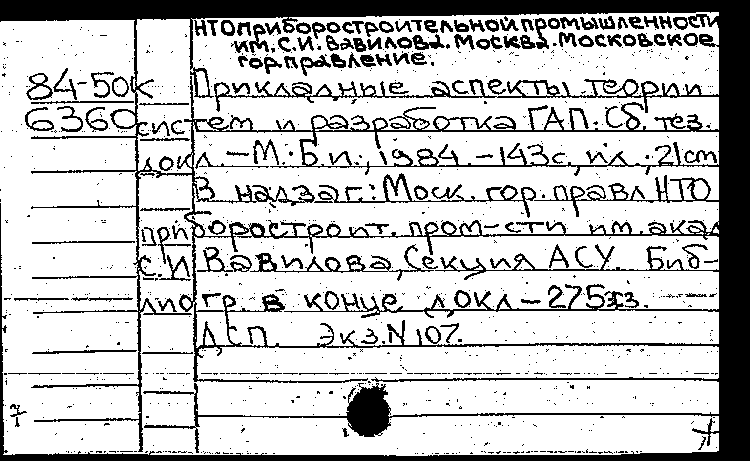 НТО приборостроительной промышленности
им. С.И. Вавилова. Москва. Московское
гор. правление.
84-50к Прикладные аспекты теории
6360 систем и разработка ГАП: Сб. тез.
докл. – М.: Б.и., 1984. – 143с, ил.; 21см
В надзаг.: Моск. гор. правл. НТО
приборостроит. пром-сти им. акад.
С.И. Вавилова, Секция АСУ. Биб-
лиогр. в конце докл – 275экз.
ДСП. Экз. N 107.